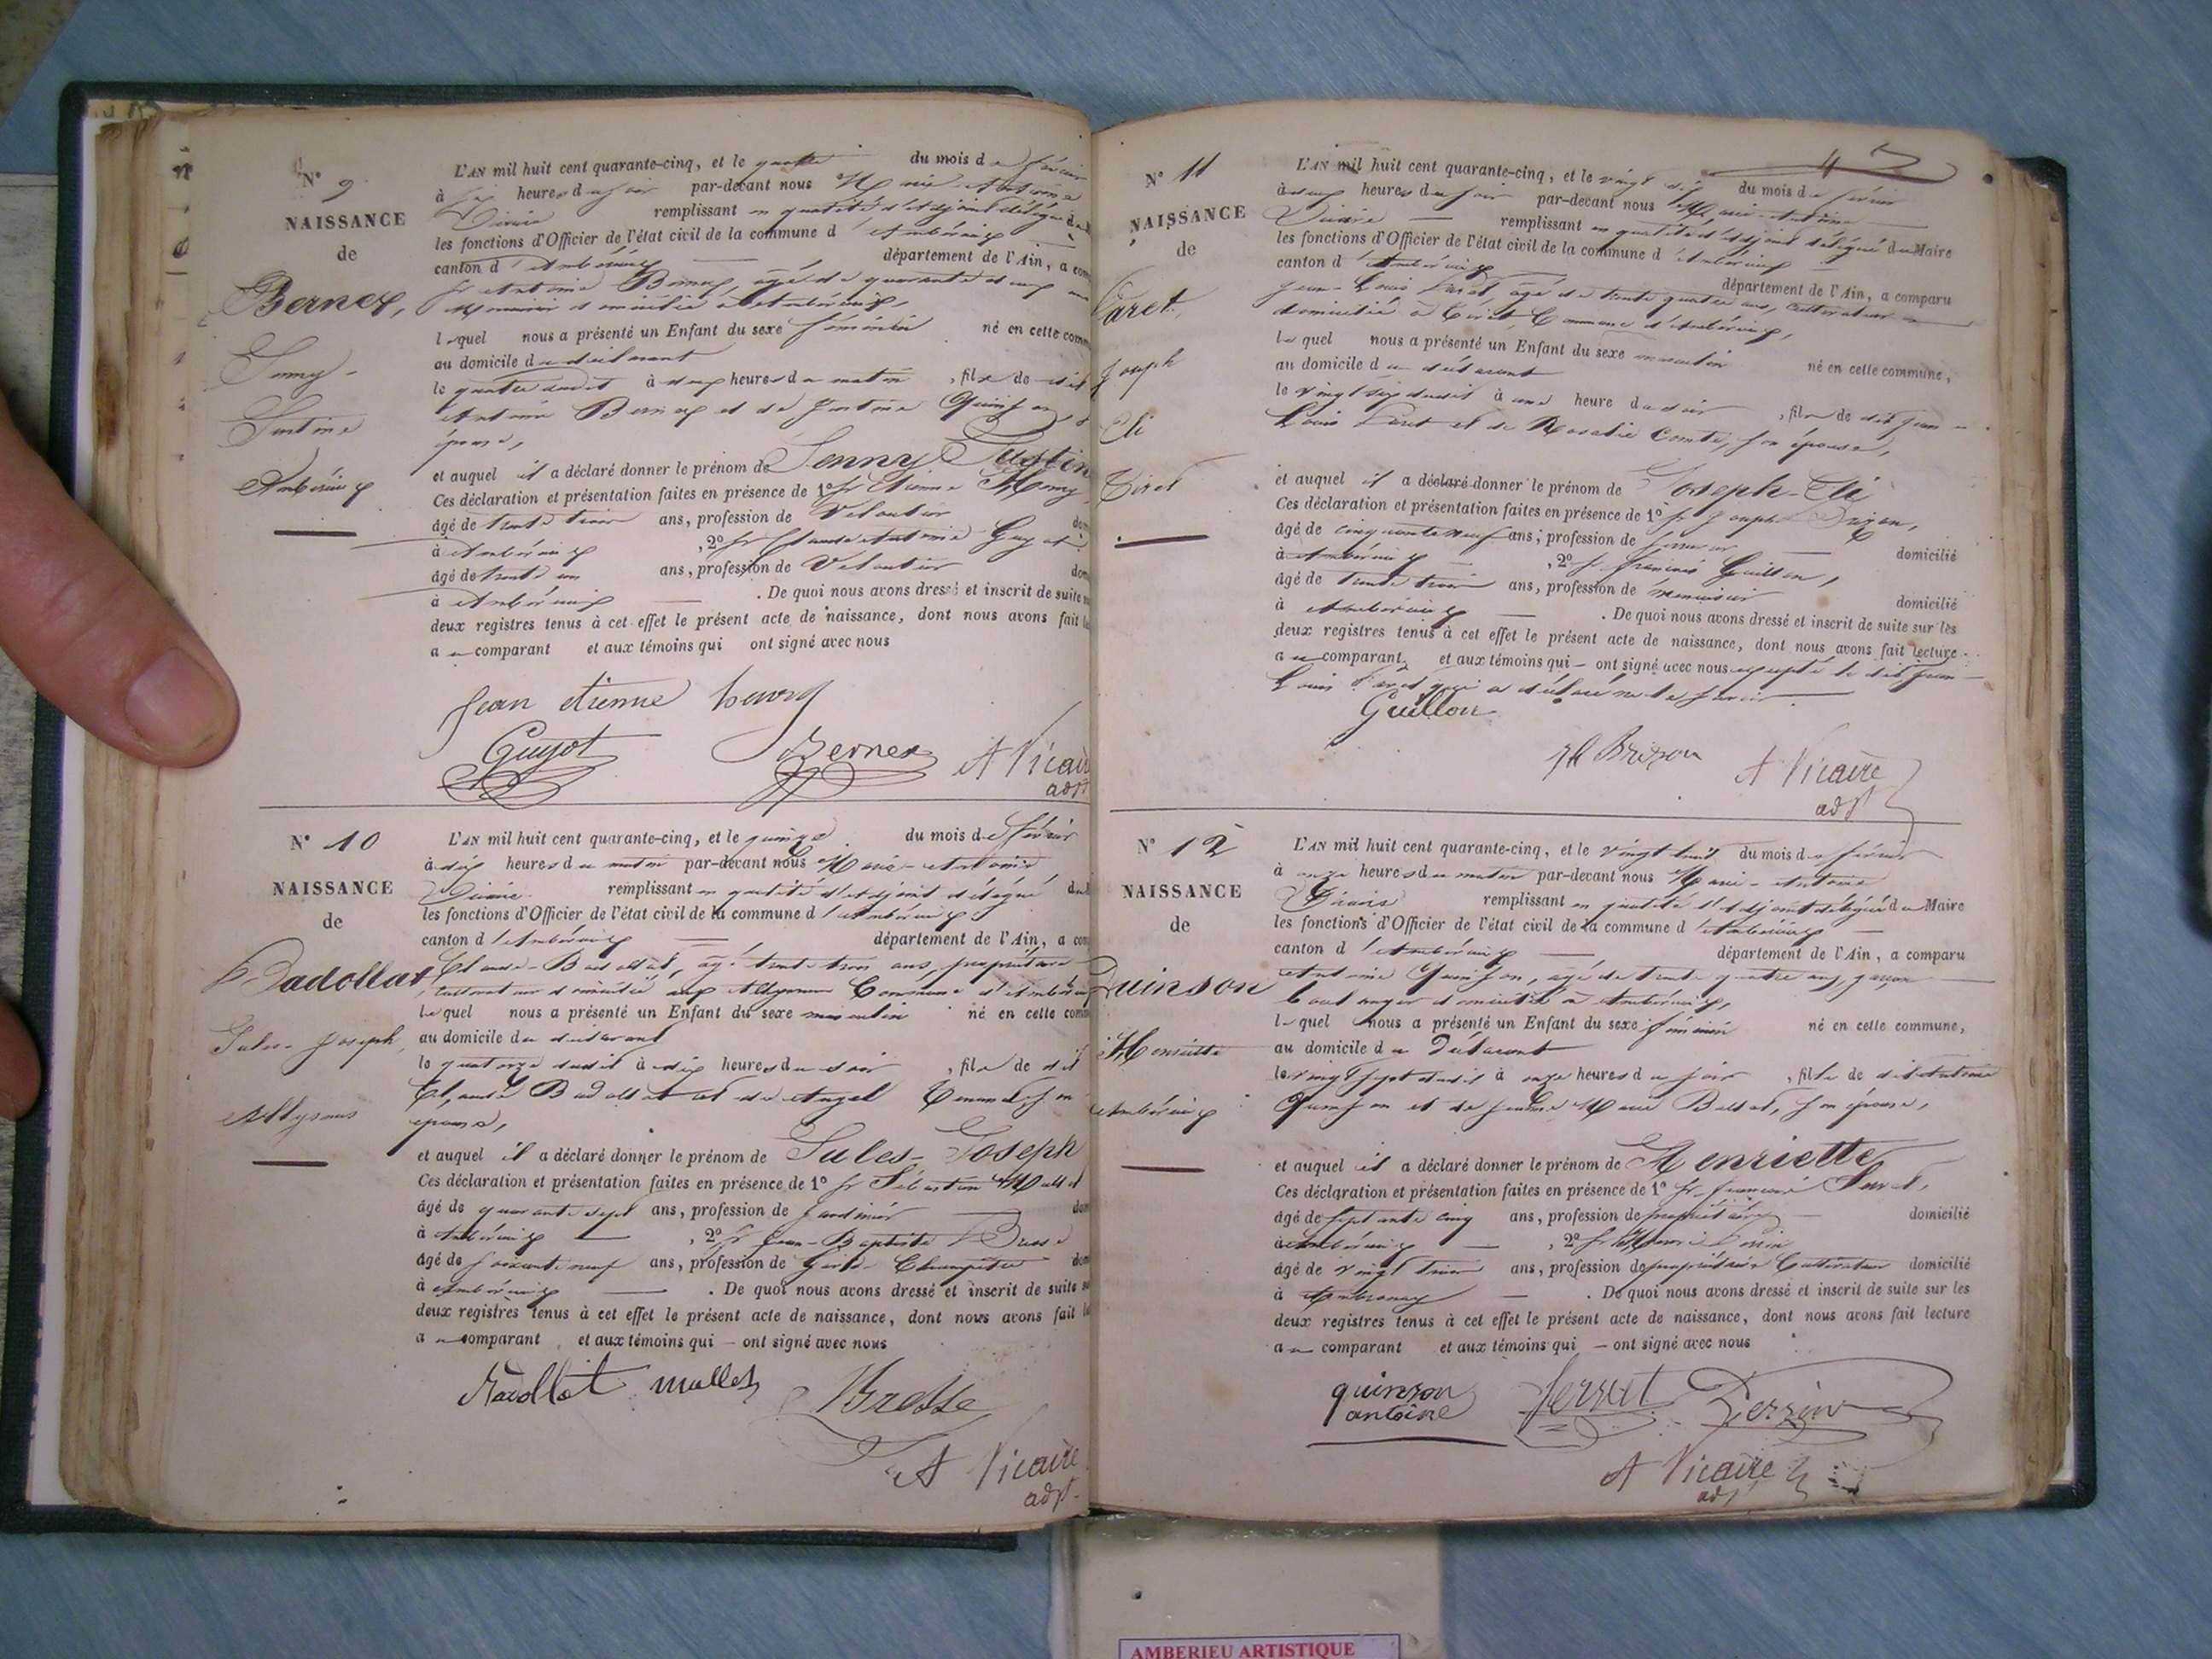 N° 9
NAISSANCE
de
Bernex,
Jenny
Justine
Ambérieux
L'AN mil huit cent quarante-cinq, et le quatre du mois de février
à heures du soir par-devant nous Marie Antoine
Vicaire remplissant en qualité d'adjoint délégué du
les fonctions d'Officier de l'état civil de la commune d'Ambérieux
canton d'Ambérieux département de l'Ain, a com
sr Antoine Bernex, âgé de quarante deux ans
domicilié à Ambérieux,
lequel nous a présenté un Enfant du sexe féminin né en cette comm
au domicile du déclarant
le quatre dudit à deux heures du matin, fille de dit
Antoine Bernex et de Justine Quinson, s
épouse,
et auquel il a déclaré donner le prénom de Jenny Justin
Ces déclaration et présentation faites en présence de 1° sr Etienne
âgé de trente trois ans, profession de Veloutier dom
à Ambérieux, 2° sr Claude Antoine Guyot
âgé de trente un ans, profession de Veloutier dom
à Ambérieux. De quoi nous avons dressé et inscrit de suite su
deux registres tenus à cet effet le présent acte de naissance, dont nous avons fait le
au comparant et aux témoins qui ont signé avec nous
Jean etienne
Guyot Bernex A Vicair
adjt
N° 10
NAISSANCE
de
Badollat
Jules-Joseph,
Allymes
L'AN mil huit cent quarante-cinq, et le quinze du mois de février
à dix heures du matin par-devant nous Marie-Antoine
Vicaire remplissant en qualité d'adjoint délégué du
les fonctions d'Officier de l'état civil de la commune d'Ambérieux
canton d'Ambérieux département de l'Ain, a com
Claude-Badollat, âgé trente trois ans, propriétaire
cultivateur domicilié aux Allymes Commune d'Ambérieux
lequel nous a présenté un Enfant du sexe masculin né en cette comm
au domicile du déclarant
le quatorze dudit à dix heures du soir, fils de dit
Claude Badollat et de son
épouse,
et auquel il a déclaré donner le prénom de Jules-Joseph
Ces déclaration et présentation faites en présence de 1° sr Sébastien Mallet
âgé de quarante sept ans, profession de jardinier dom
à Ambérieux, 2° sr Jean-Baptiste Bresse
âgé de soixante neuf ans, profession de Garde-Champêtre dom
à Ambérieux. De quoi nous avons dressé et inscrit de suite su
deux registres tenus à cet effet le présent acte de naissance, dont nous avons fait le
au comparant, et aux témoins qui — ont signé avec nous
Badollat mallet Bresse
A Vicaire
adjt
47
N° 11
NAISSANCE
de
Joseph
Eli
Tiret
L'AN mil huit cent quarante-cinq, et le vingt six du mois de février
à deux heures du soir par-devant nous Marie-Antoine
Vicaire remplissant en qualité d'adjoint délégué du Maire
les fonctions d'Officier de l'état civil de la commune d'Ambérieux
canton d'Ambérieux département de l'Ain, a comparu
Jean-Louis âgé de trente quatre ans, cultivateur
domicilié à Tiret, Commune d'Ambérieux,
lequel nous a présenté un Enfant du sexe masculin né en cette commune,
au domicile du déclarant
le vingt six dudit à une heure du soir, fils de dit Jean
Louis et de Rosalie Comte, son épouse,
et auquel il a déclaré donner le prénom de Joseph-Eli
Ces déclaration et présentation faites en présence de 1° sr Joseph Brizon,
âgé de cinquante neuf ans; profession de domicilié
à Ambérieux, 2° sr françois Guillon,
âgé de trente trois ans, profession de menuisier domicilié
à Ambérieux. De quoi nous avons dressé et inscrit de suite sur les
deux registres tenus à cet effet le présent acte de naissance, dont nous avons fait lecture
au comparant, et aux témoins qui — ont signé avec nous excepté le dit Jean
Louis qui a déclaré ne le savoir
Guillon
Brizon A Vicaire
adjt
N° 12
NAISSANCE
de
Quinson
Henriette
Ambérieux
L'AN mil huit cent quarante-cinq, et le vingt huit du mois de février
à onze heures du matin par-devant nous Marie-Antoine
Vicaire remplissant en qualité d'adjoint délégué du Maire
les fonctions d'Officier de l'état civil de la commune d'Ambérieux
canton d'Ambérieux département de l'Ain, a comparu
Antoine Quinson, âgé de trente quatre ans, garçon
boulanger domicilié à Ambérieux,
lequel nous a présenté un Enfant du sexe féminin né en cette commune,
au domicile du Déclarant
le vingt sept dudit à onze heures du soir, fille de dit Antoine
Quinson et de Marie, son épouse,
et auquel il a déclaré donner le prénom de Henriette
Ces déclaration et présentation faites en présence de 1° sr françois
âgé de septante cinq ans, profession de propriétaire domicilié
à Ambérieux, 2° sr
âgé de vingt trois ans, profession de propriétaire Cultivateur domicilié
à Ambronay. De quoi nous avons dressé et inscrit de suite sur les
deux registres tenus à cet effet le présent acte de naissance, dont nous avons fait lecture
au comparant et aux témoins qui — ont signé avec nous
quinson
antoine
Perrin
A Vicaire
adj
AMBERIEU ARTISTIQUE